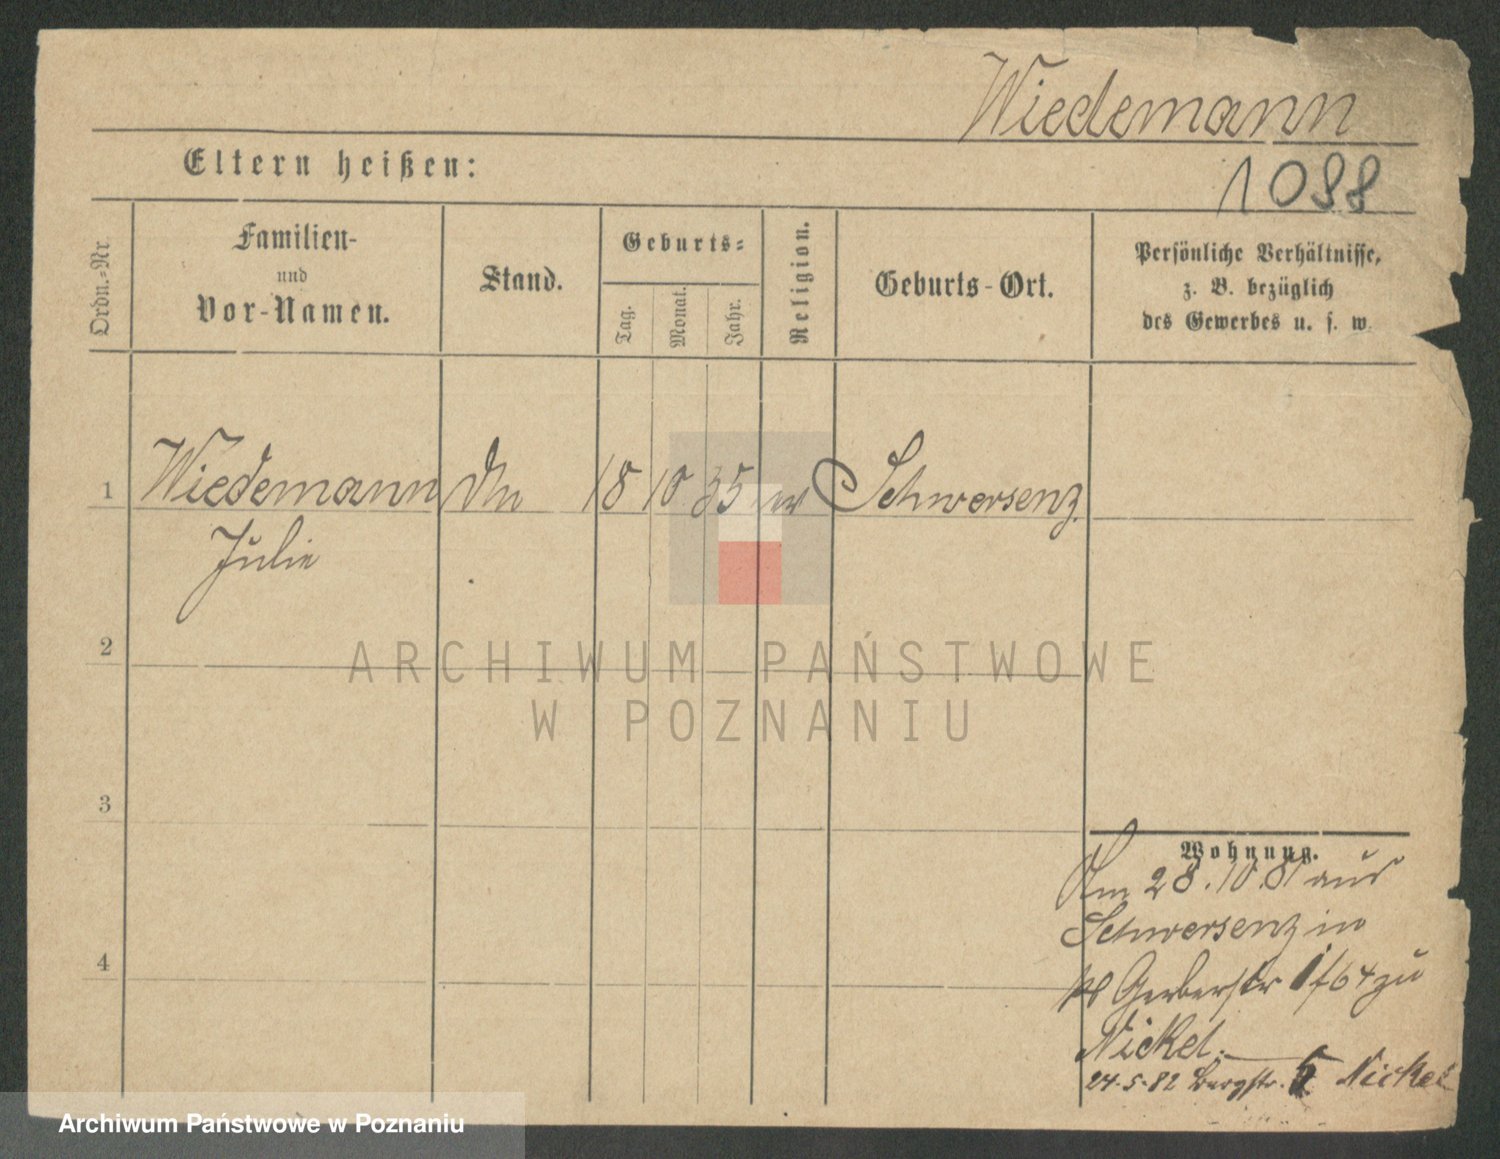 Wiedemann
Eltern heißen:
1088
Ordn.-Nr.
Familien-
und
Vor-Namen.
Stand.
Geburts-
Tag.
Monat.
Jahr.
Religion.
Geburts-Ort.
Persönliche Verhältnisse,
z. B. bezüglich
des Gewerbes u. s. w.
1 Wiedemann 18 10 35 Schwersenz
Julie
2
ARCHIWUM PAŃSTWOWE
W POZNANIU
3
Wohnung.
Am 28.10.81 aus
Schwersenz in
Gerberstr 1/64 zu
4
Nickel.
24-5-82 Burgstr. 5 Nickel
Archiwum Państwowe w Poznaniu